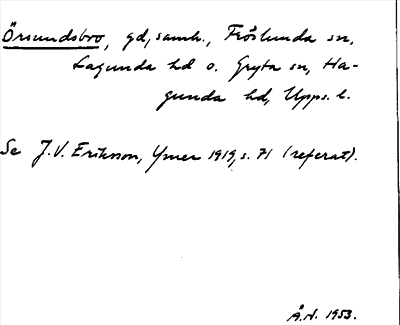 Örsundsbro, gd, samh., Fröslunda sn,
Lagunda hd o. Gryta sn, Ha-
gunda hd, Upps. l.
Se J.V. Eriksson, Ymer 1919, s. 71 (referat).
Å.N. 1953.